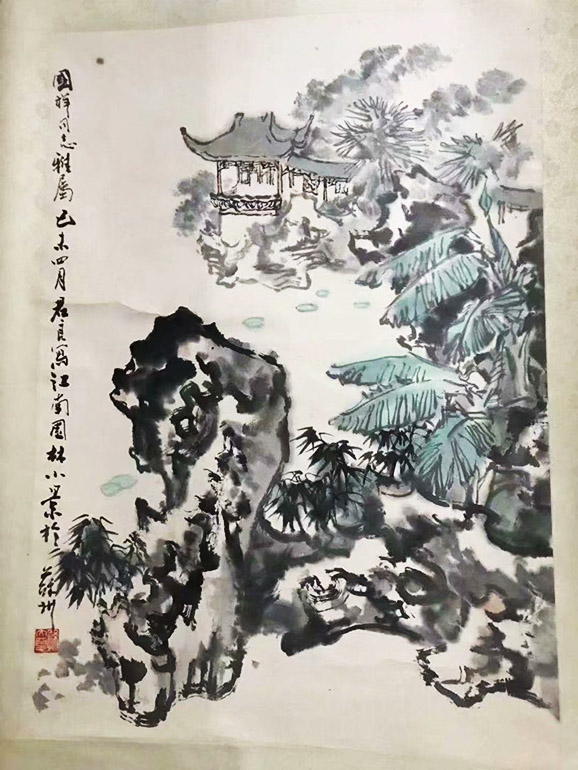 國祥同志雅屬己未四月君良寫江南園林小景於蘇州